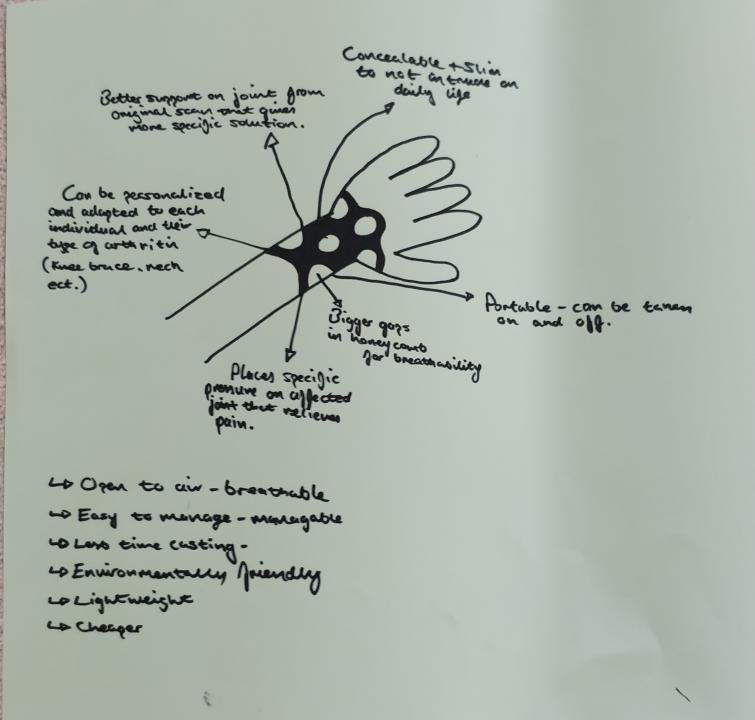 Concealable + Slim
to not intrude on
daily life
Better support on joint from
original scan that gives
more specific solution.
Can be personalized
and adapted to each
individual and their
type of arthritis
(Knee brace, neck
ect.)
Portable - can be taken
on and off.
Bigger gaps
in honeycomb
for breathability
Places specific
pressure on affected
joint that relieves
pain.
↳ Open to air - breathable
↳ Easy to manage - managable
↳ Less time casting -
↳ Environmentally friendly
↳ Lightweight
↳ Cheaper